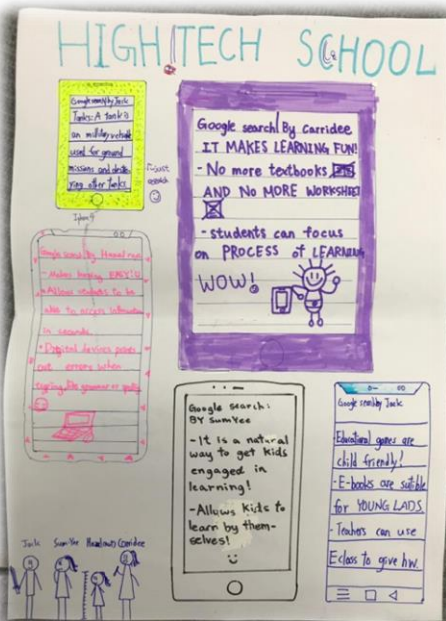 HIGH TECH SCHOOL
Google search by Jack
Tanks: A tank is
an military vehicle
used for ground
missions and destro
ying other tanks
Google search! By Carridee
IT MAKES LEARNING FUN!
- No more textbooks
AND NO MORE WORKSHEET
- students can focus
on PROCESS of LEARNING
WOW!
Google search by
- Makes EASY!!!
- Allows students to be
able to access information
in seconds.
- Digital devices points
out errors when
typing, like grammar or
Google search:
BY SumYee
-It is a natural
way to get kids
engaged in
learning!
-Allows kids to
learn by them-
selves!
Google search by Jack
-Educational games are
child friendly!
- E-books are
for YOUNG LADS
-Teachers can use
Eclass to give hw.
Jack SumYee Carridee